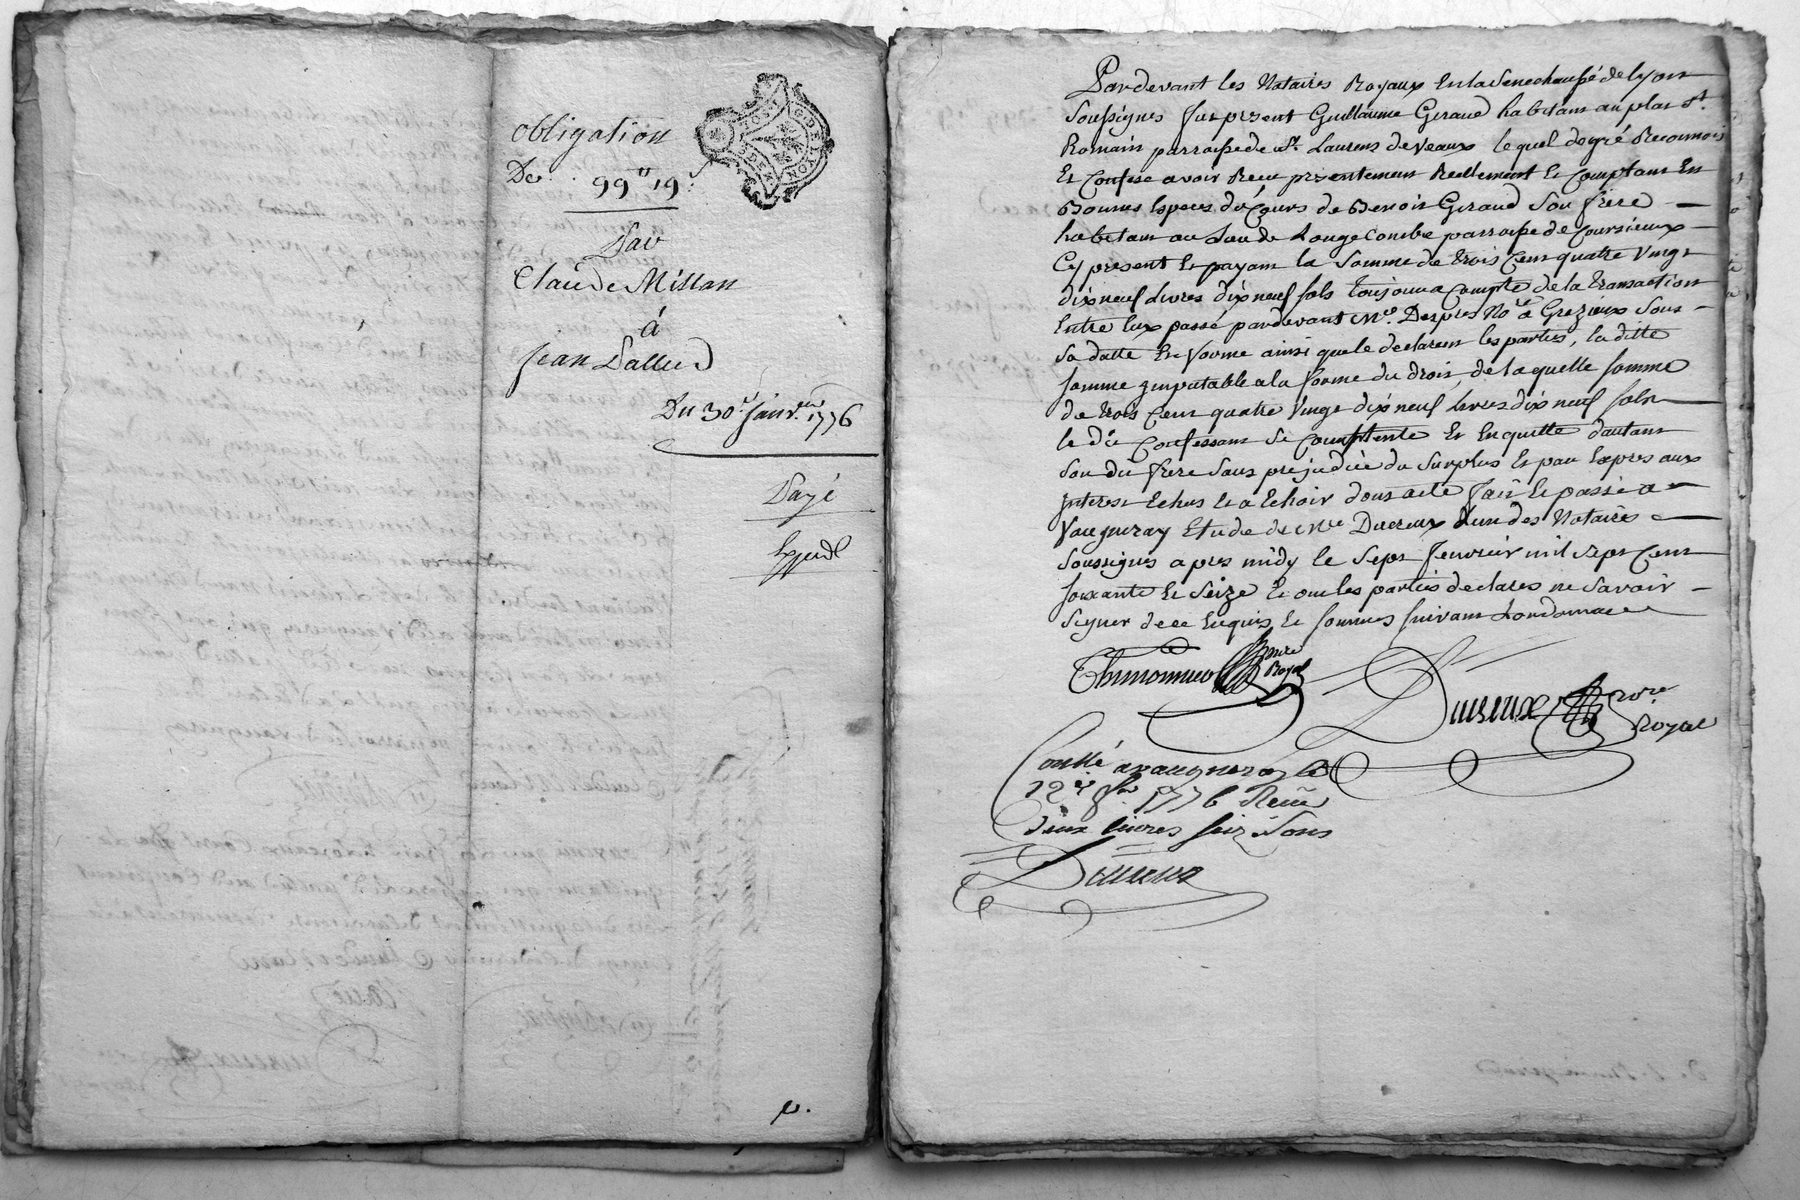 obligation
De 99ᵗᵗ 19ˢ
Par
Claude Millan
á
Jean Pallud
Du 30ᵉ Janvᵉʳ 1776
Payé
Expedé
Pardevant les Notaires Royaux En la Senechaussé de lyon
Soussignes fut present Guillaume Geraud habitant au plat Sᵗ
Romain parroisse de Sᵗ Laurent de Veaux lequel de gré Reconnois
Et Confesse avoir Receu presentement Reéllement Et Comptant En
Bonnes Especes du Cours de Benoit Geraud Son frere
habitant au Lieu de Longecombe parroisse de Coursieux
Cy present Et payant la Somme de trois Cent quatre Vingt
dix neuf Livres dix neuf sols toujour a Compte de la transaction
Entre Eux passé pardevant Mᵉ Despres Noʳᵉ a Grezieux Sous
Sa datte En forme ainsi que le declarent les parties, la ditte
somme imputable a la forme du droit, de laquelle somme
de trois Cent quatre Vingt dix neuf livres dix neuf sols
le dit Confessant Se Contente Et En quitte d'autant
Son dit frere Sans prejudice du Surplus Et par Expres aux
Interest Echus Et a Echoir dont acte fait Et passé a
Vaugneray Etude de Mᵉ Ducreux L'un des Notaires
Soussignes apres midy le Sept fevrier mil sept Cent
soixante Et Seize Et ont les parties declares ne Savoir
Signer de ce Enquis Et sommes suivant Lordonnance
noʳᵉ
Royal
Ducreux noʳᵉ
Royal
Conllé a vaugneray le
12ᵉ 1776 Reçu
deux livres seize Sous
Ducreux